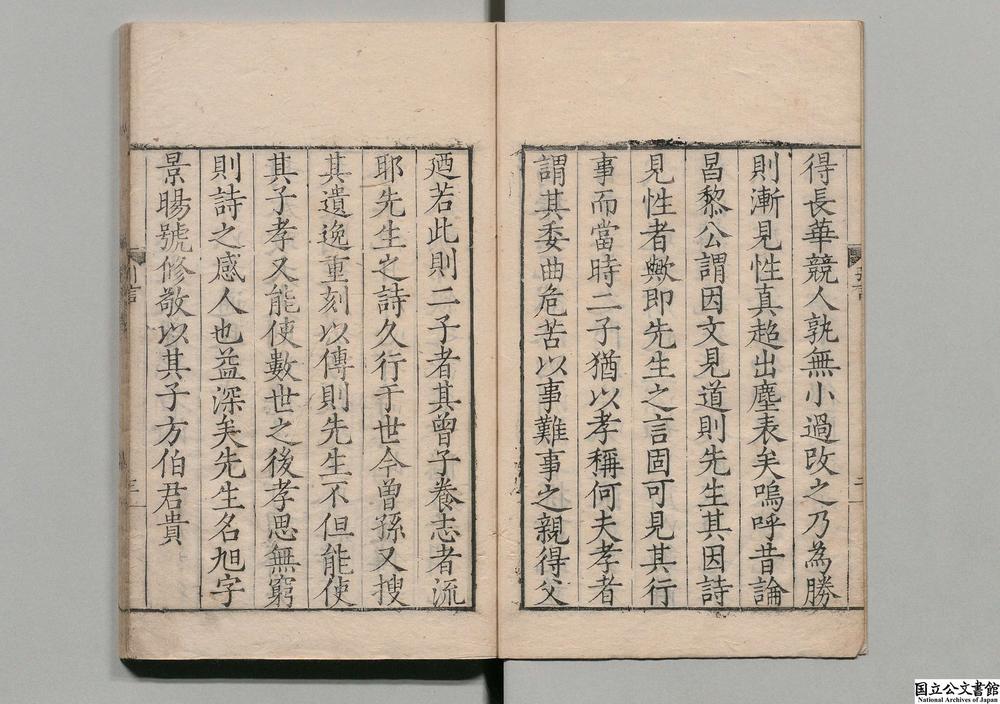 得長華競人孰無小過改之乃為勝
則漸見性真超出塵表矣嗚呼昔論
昌黎公謂因文見道則先生其因詩
見性者歟即先生之言固可見其行
事而當時二子猶以孝稱何夫孝者
謂其委曲危苦以事難事之親得父
廼若此則二子者其曾子養志者流
耶先生之詩久行于世今曾孫又搜
其遺逸重刻以傳則先生不但能使
其子孝又能使數世之後孝思無窮
則詩之感人也益深矣先生名旭字
景暘號修敬以其子方伯君貴
国立公文書館
National Archives of Japan